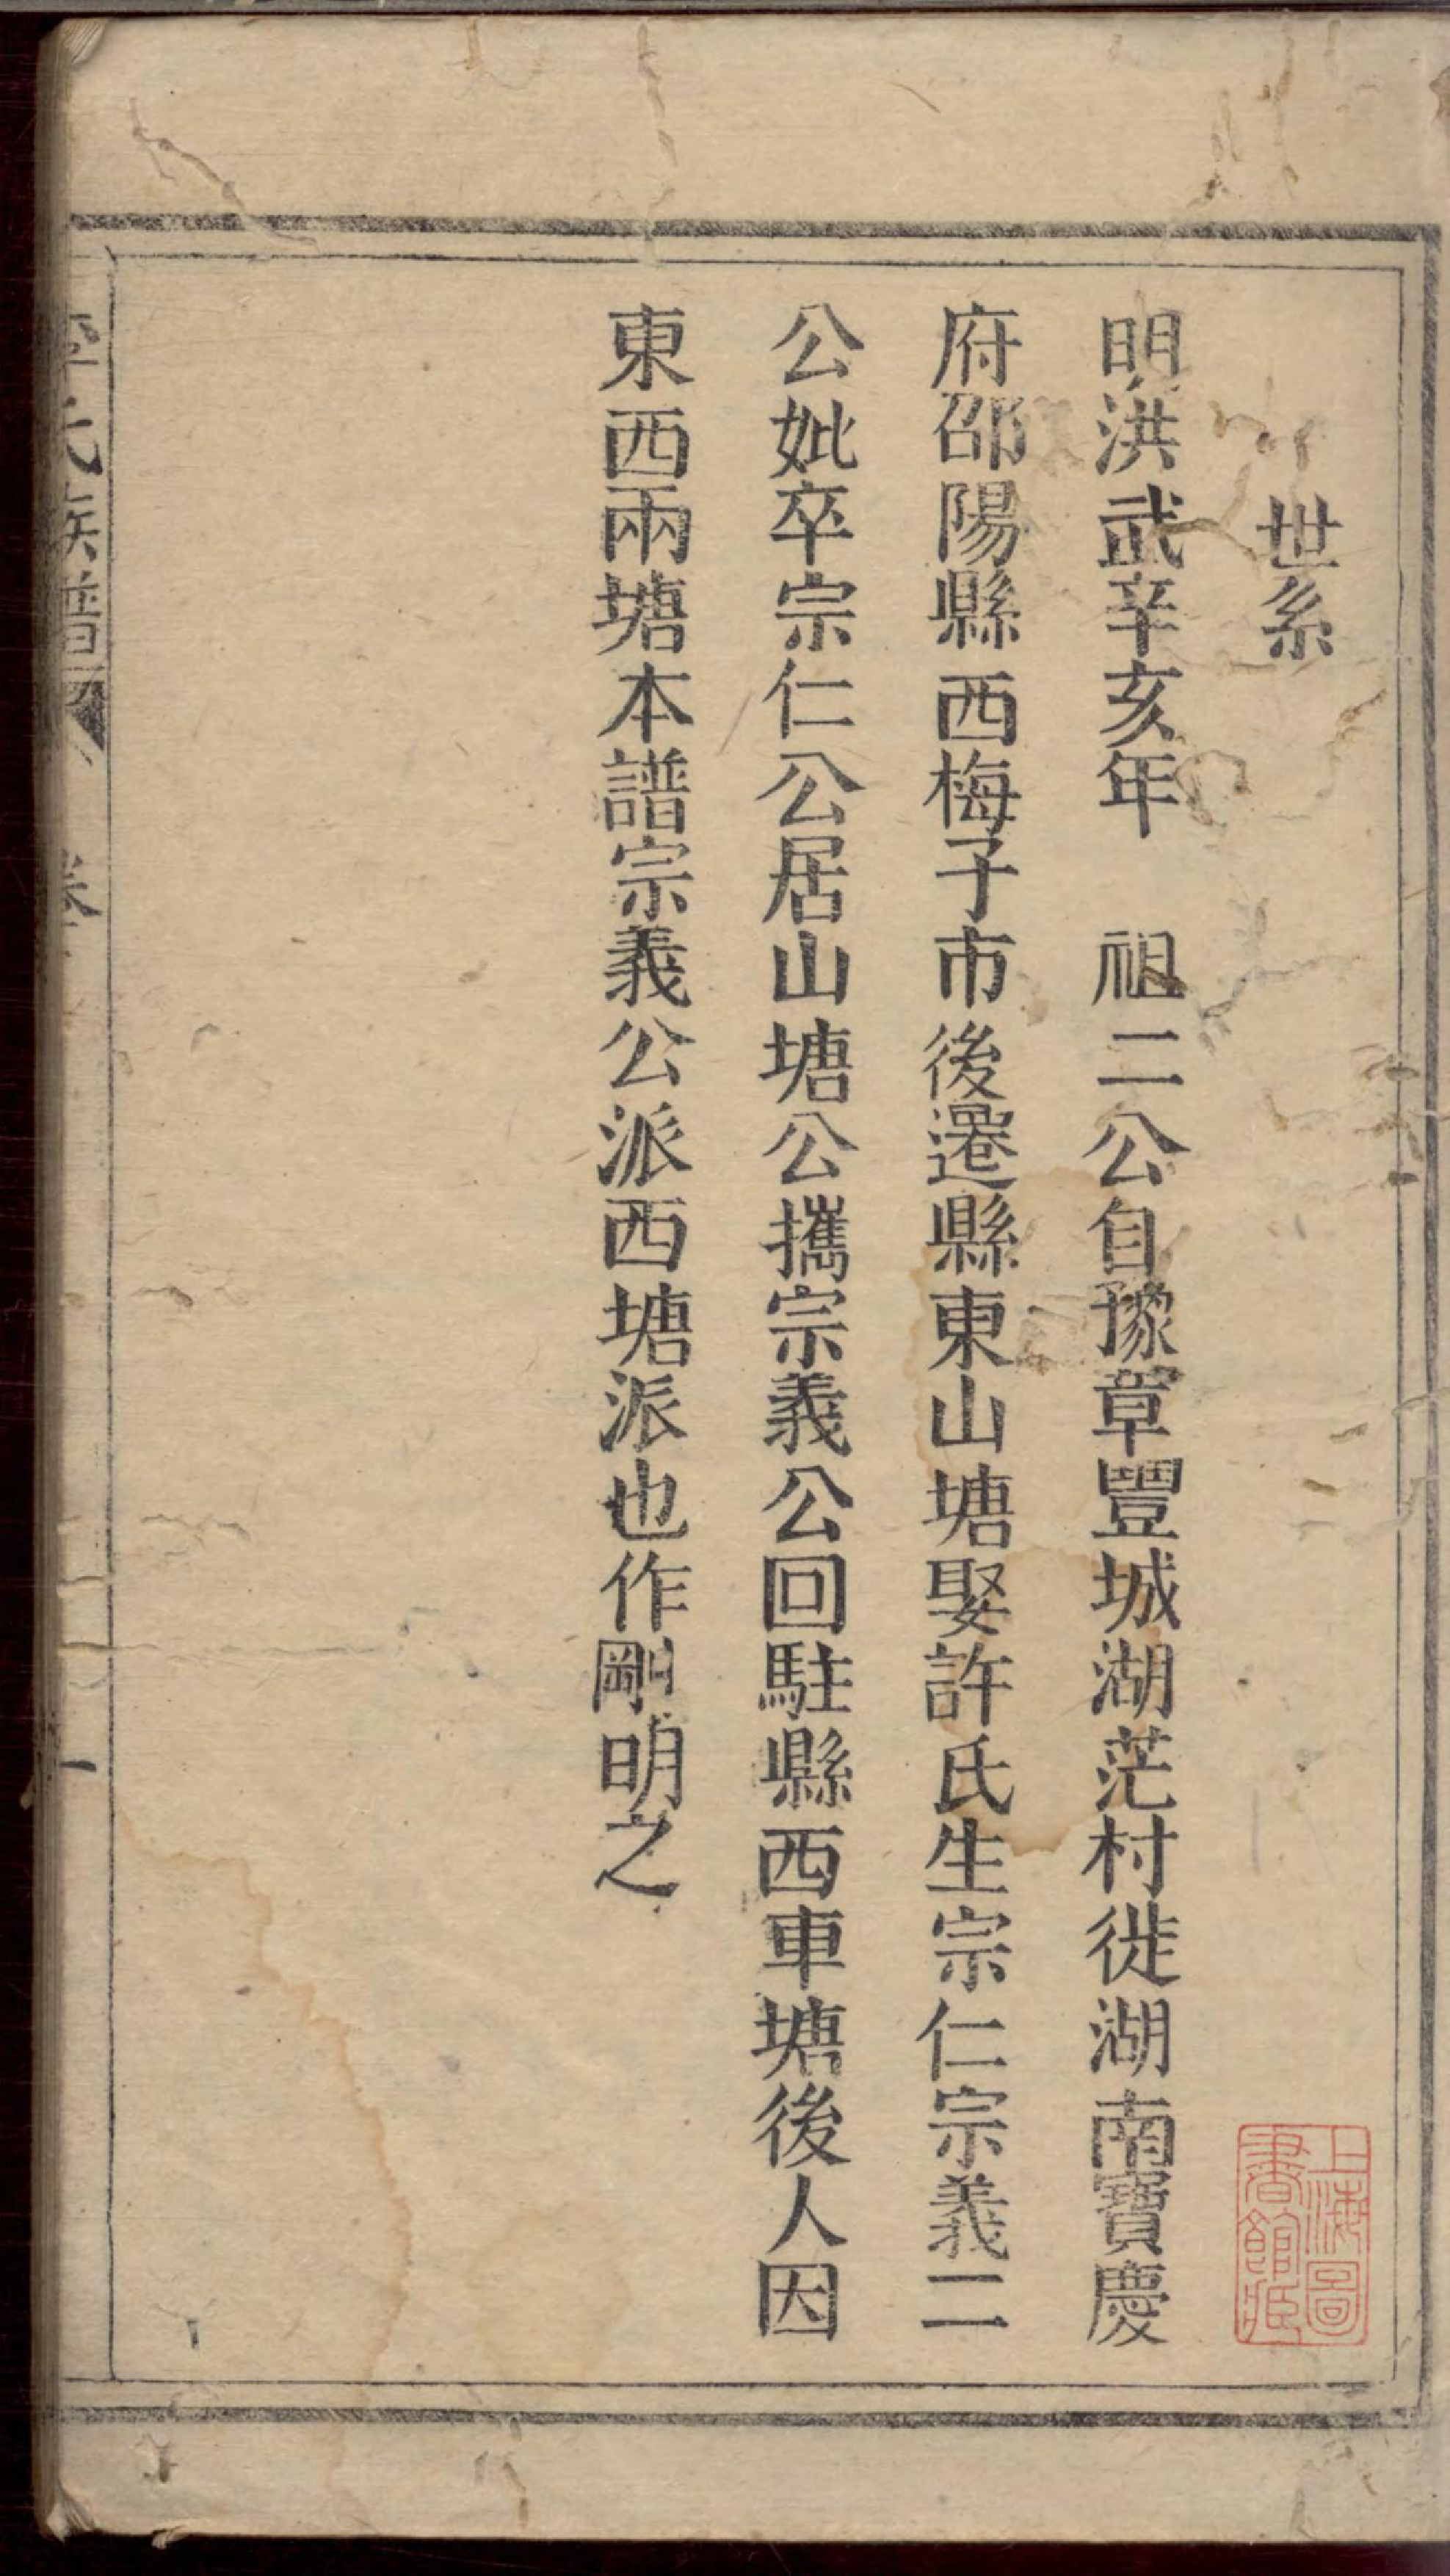 世系
明洪武辛亥年　祖二公自豫章豐城湖茫村徙湖南寶慶
府邵陽縣西梅子市後遷縣東山塘娶許氏生宗仁宗義二
公妣卒宗仁公居山塘公攜宗義公回駐縣西車塘後人因
東西兩塘本譜宗義公派西塘派也作剛明之
上海圖
書館藏
氏族譜
卷
一